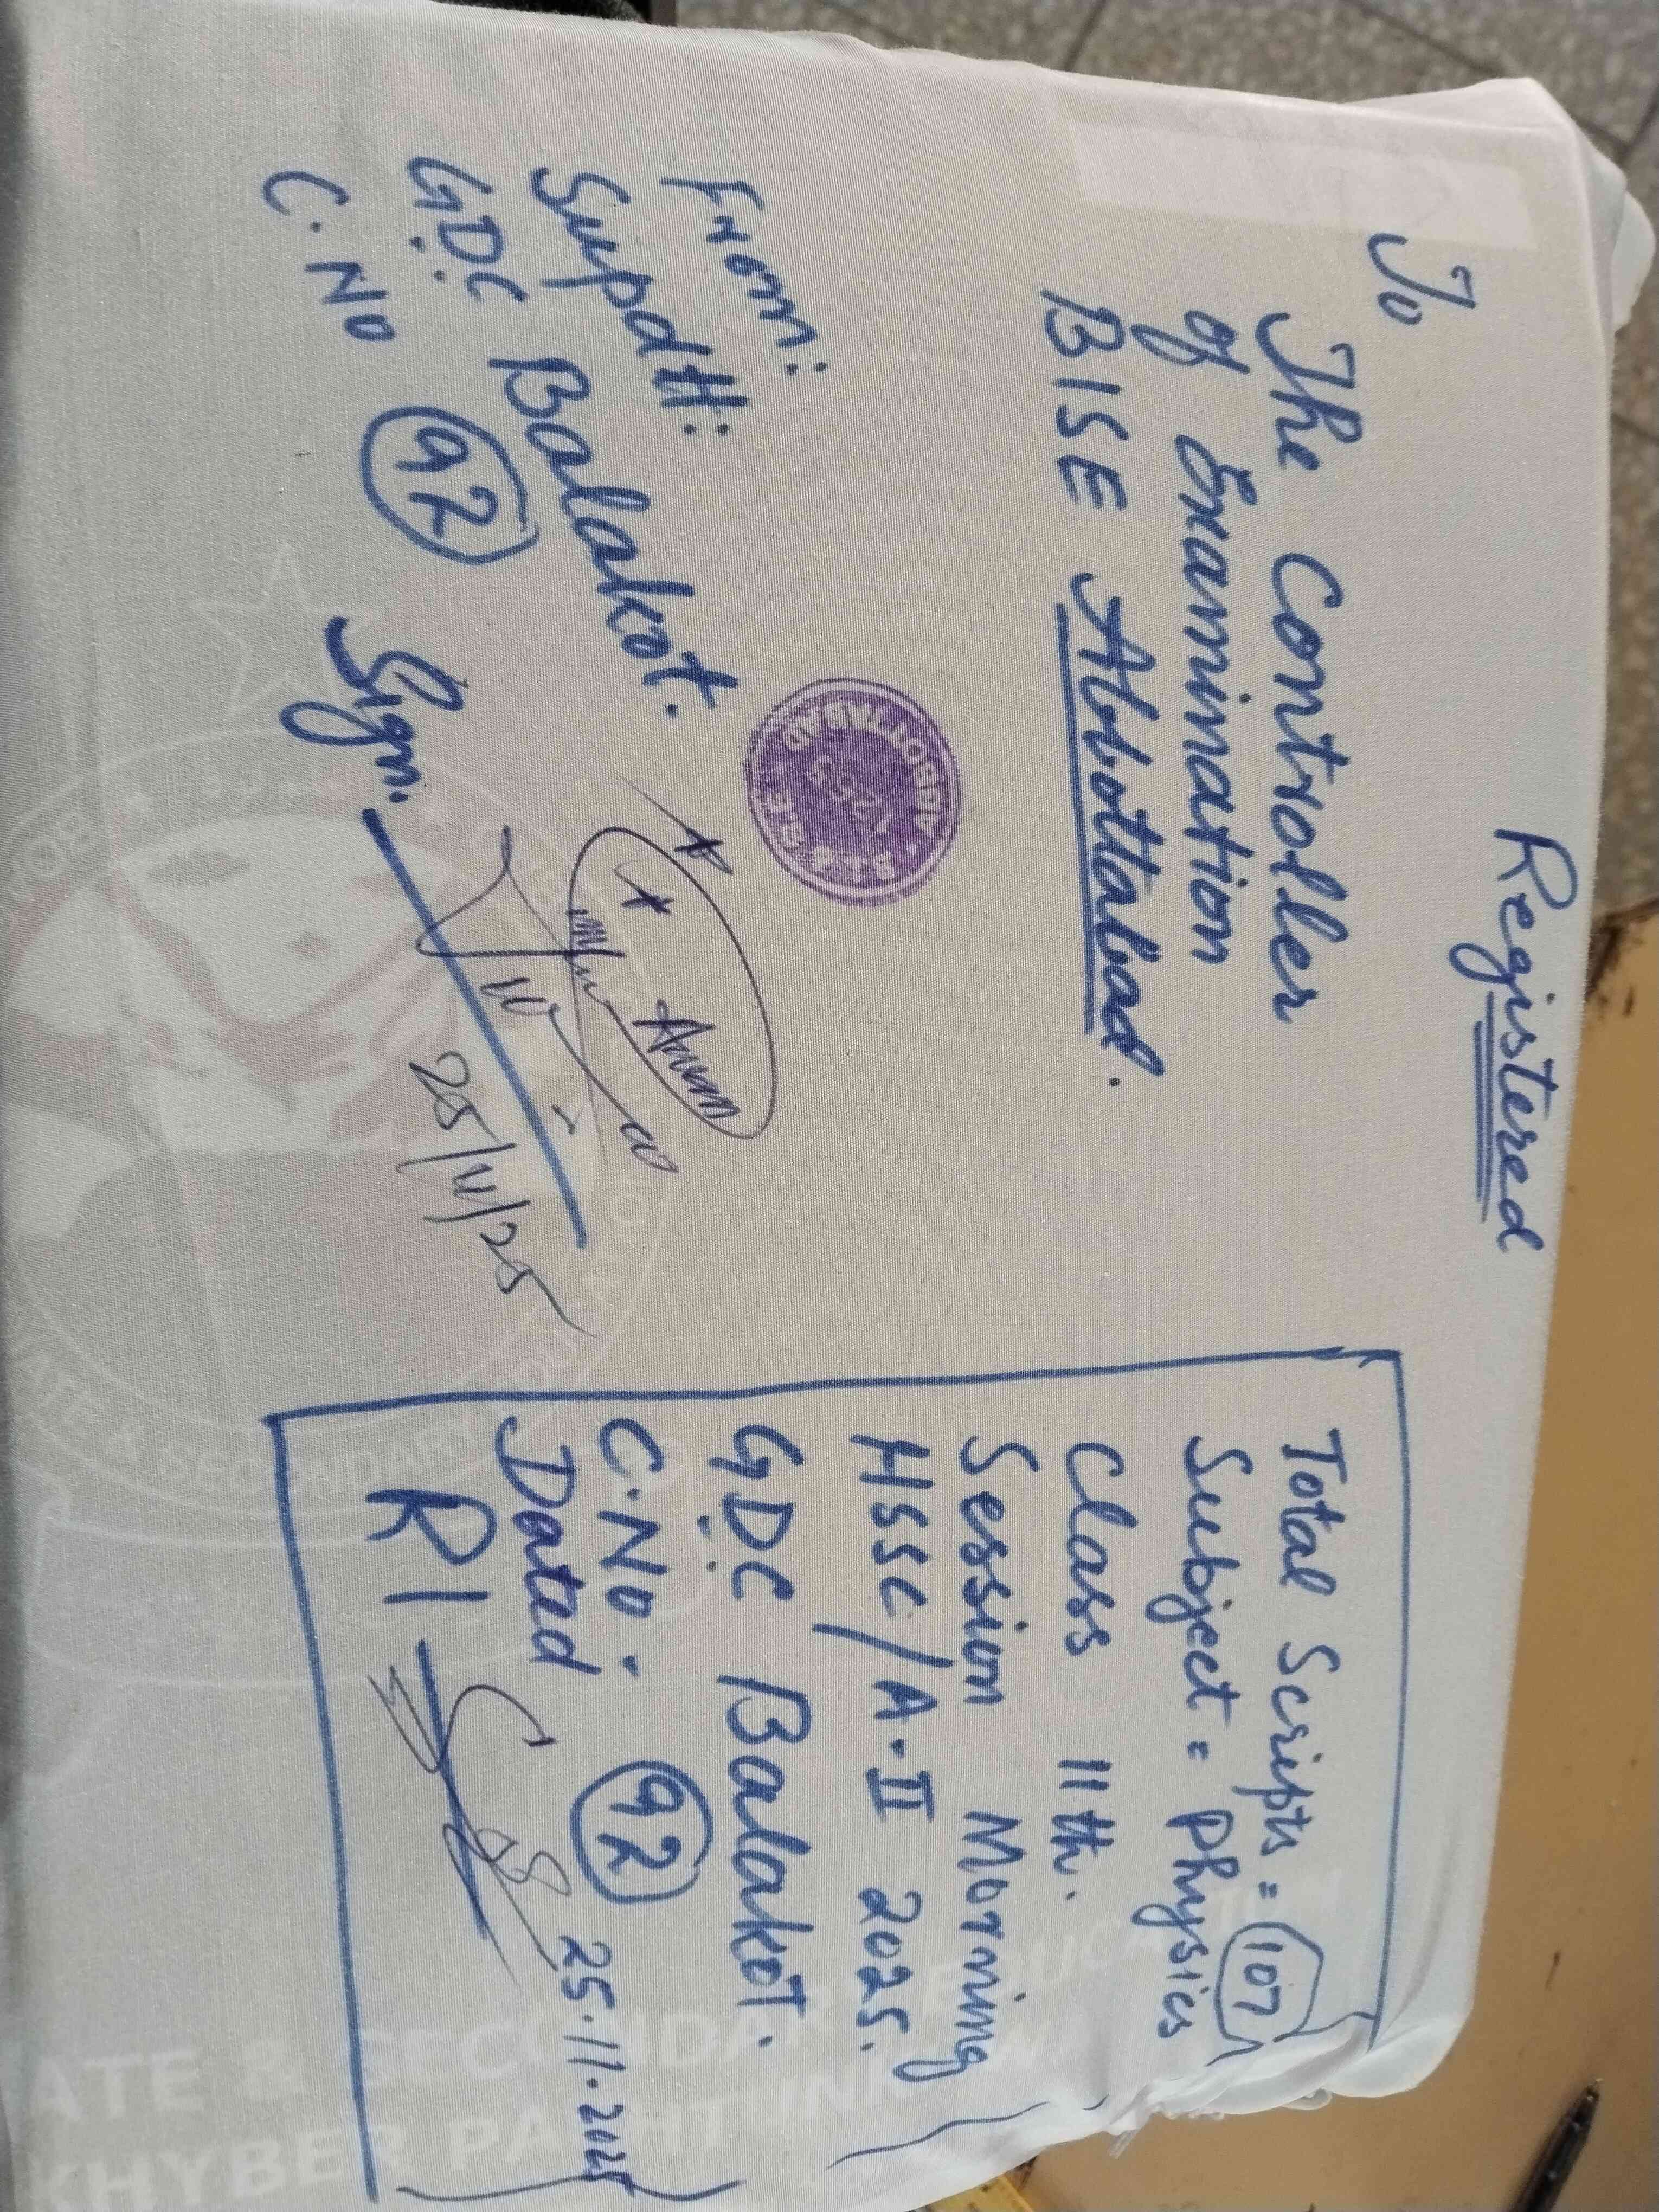 Registered
To
The Controller
of Examination
BISE Abbottabad.
From:
Supdtt:
G.D.C Balakot.
C.No 92
Sign.
25/11/25
ABBOTTABAD
Total Scripts = 107
Subject = Physics
Class 11th.
Session Morning
HSSC/A-II 2025.
G.D.C Balakot.
C.No. 92
Dated 25.11.2025
RI
ATE & SECONDARY EDUCATION
KHYBER PAKHTUNKHW